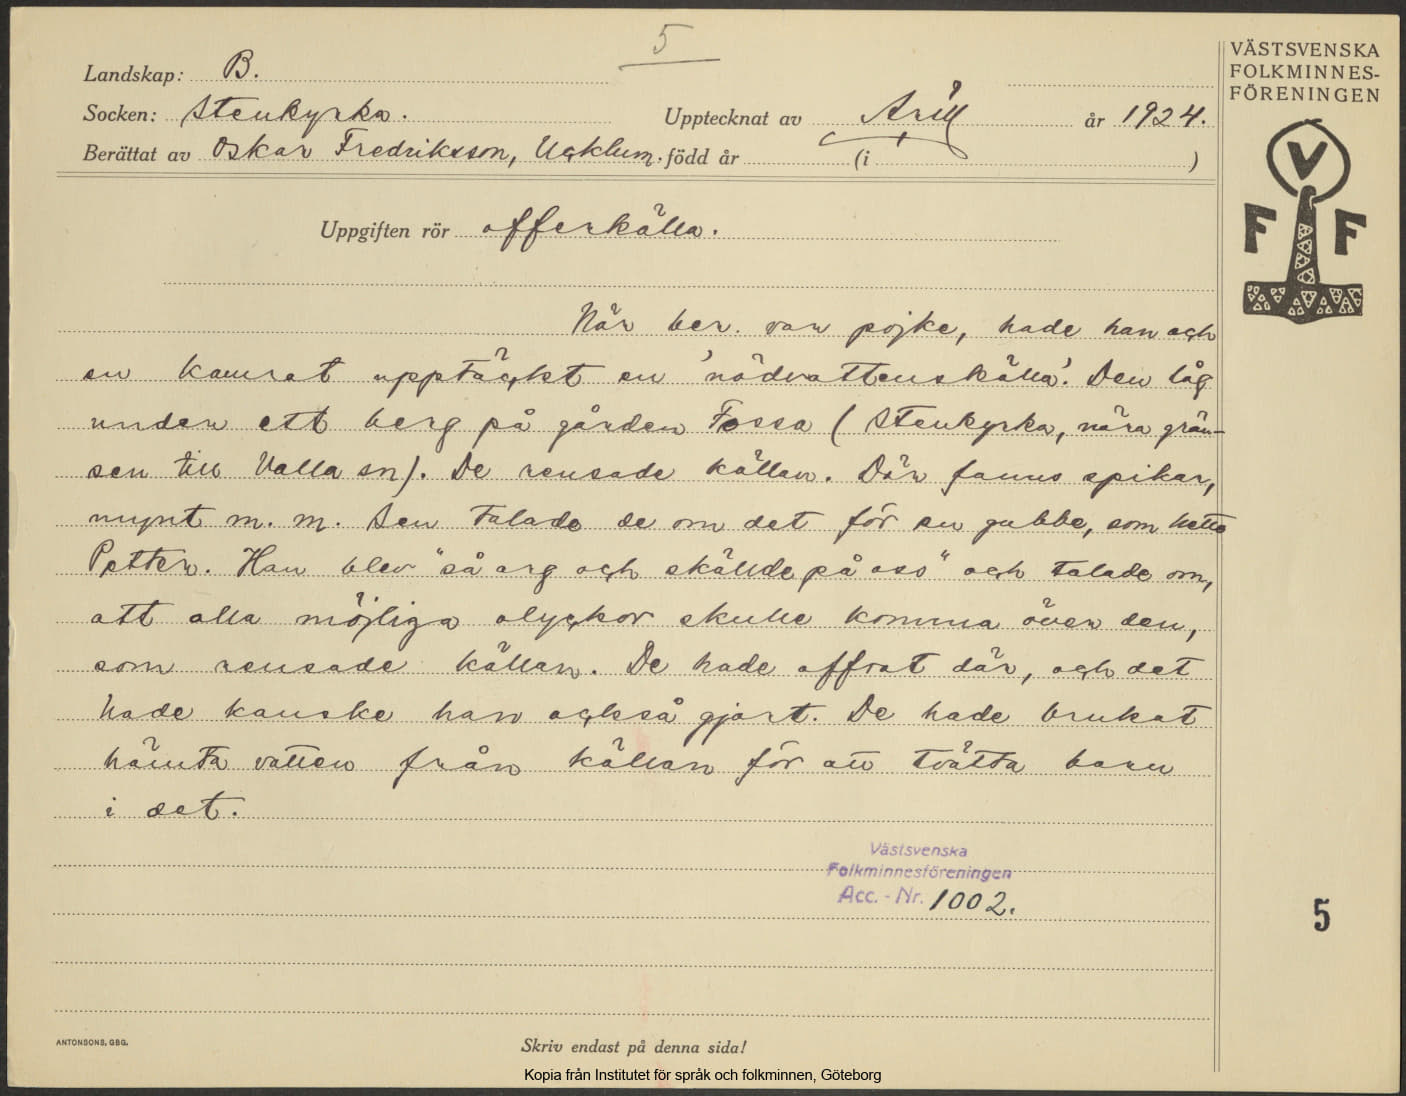 5
VÄSTSVENSKA
FOLKMINNES-
FÖRENINGEN
Landskap: B.
Socken: Stenkyrka. Upptecknat av Arill år 1924.
Berättat av Oskar Fredriksson, Ucklum. född år (i )
V
F F
Uppgiften rör offerkälla.
När ber. var pojke, hade han och
en kamrat upptäckt en 'nödvattenskälla'. Den låg
under ett berg på gården Fossa (Stenkyrka, nära grän-
sen till Valla sn). De rensade källan. Där fanns spikar,
mynt m. m. Sen talade de om det för en gubbe, som hette
Petter. Han blev "så arg och skällde på oss" och talade om,
att alla möjliga olyckor skulle komma över den,
som rensade källan. De hade offrat där, och det
hade kanske han också gjort. De hade brukat
hämta vatten från källan för att tvätta barn
i det.
Västsvenska
Folkminnesföreningen
Acc. - Nr. 1002.
5
ANTONSONS, GBG.
Skriv endast på denna sida!
Kopia från Institutet för språk och folkminnen, Göteborg